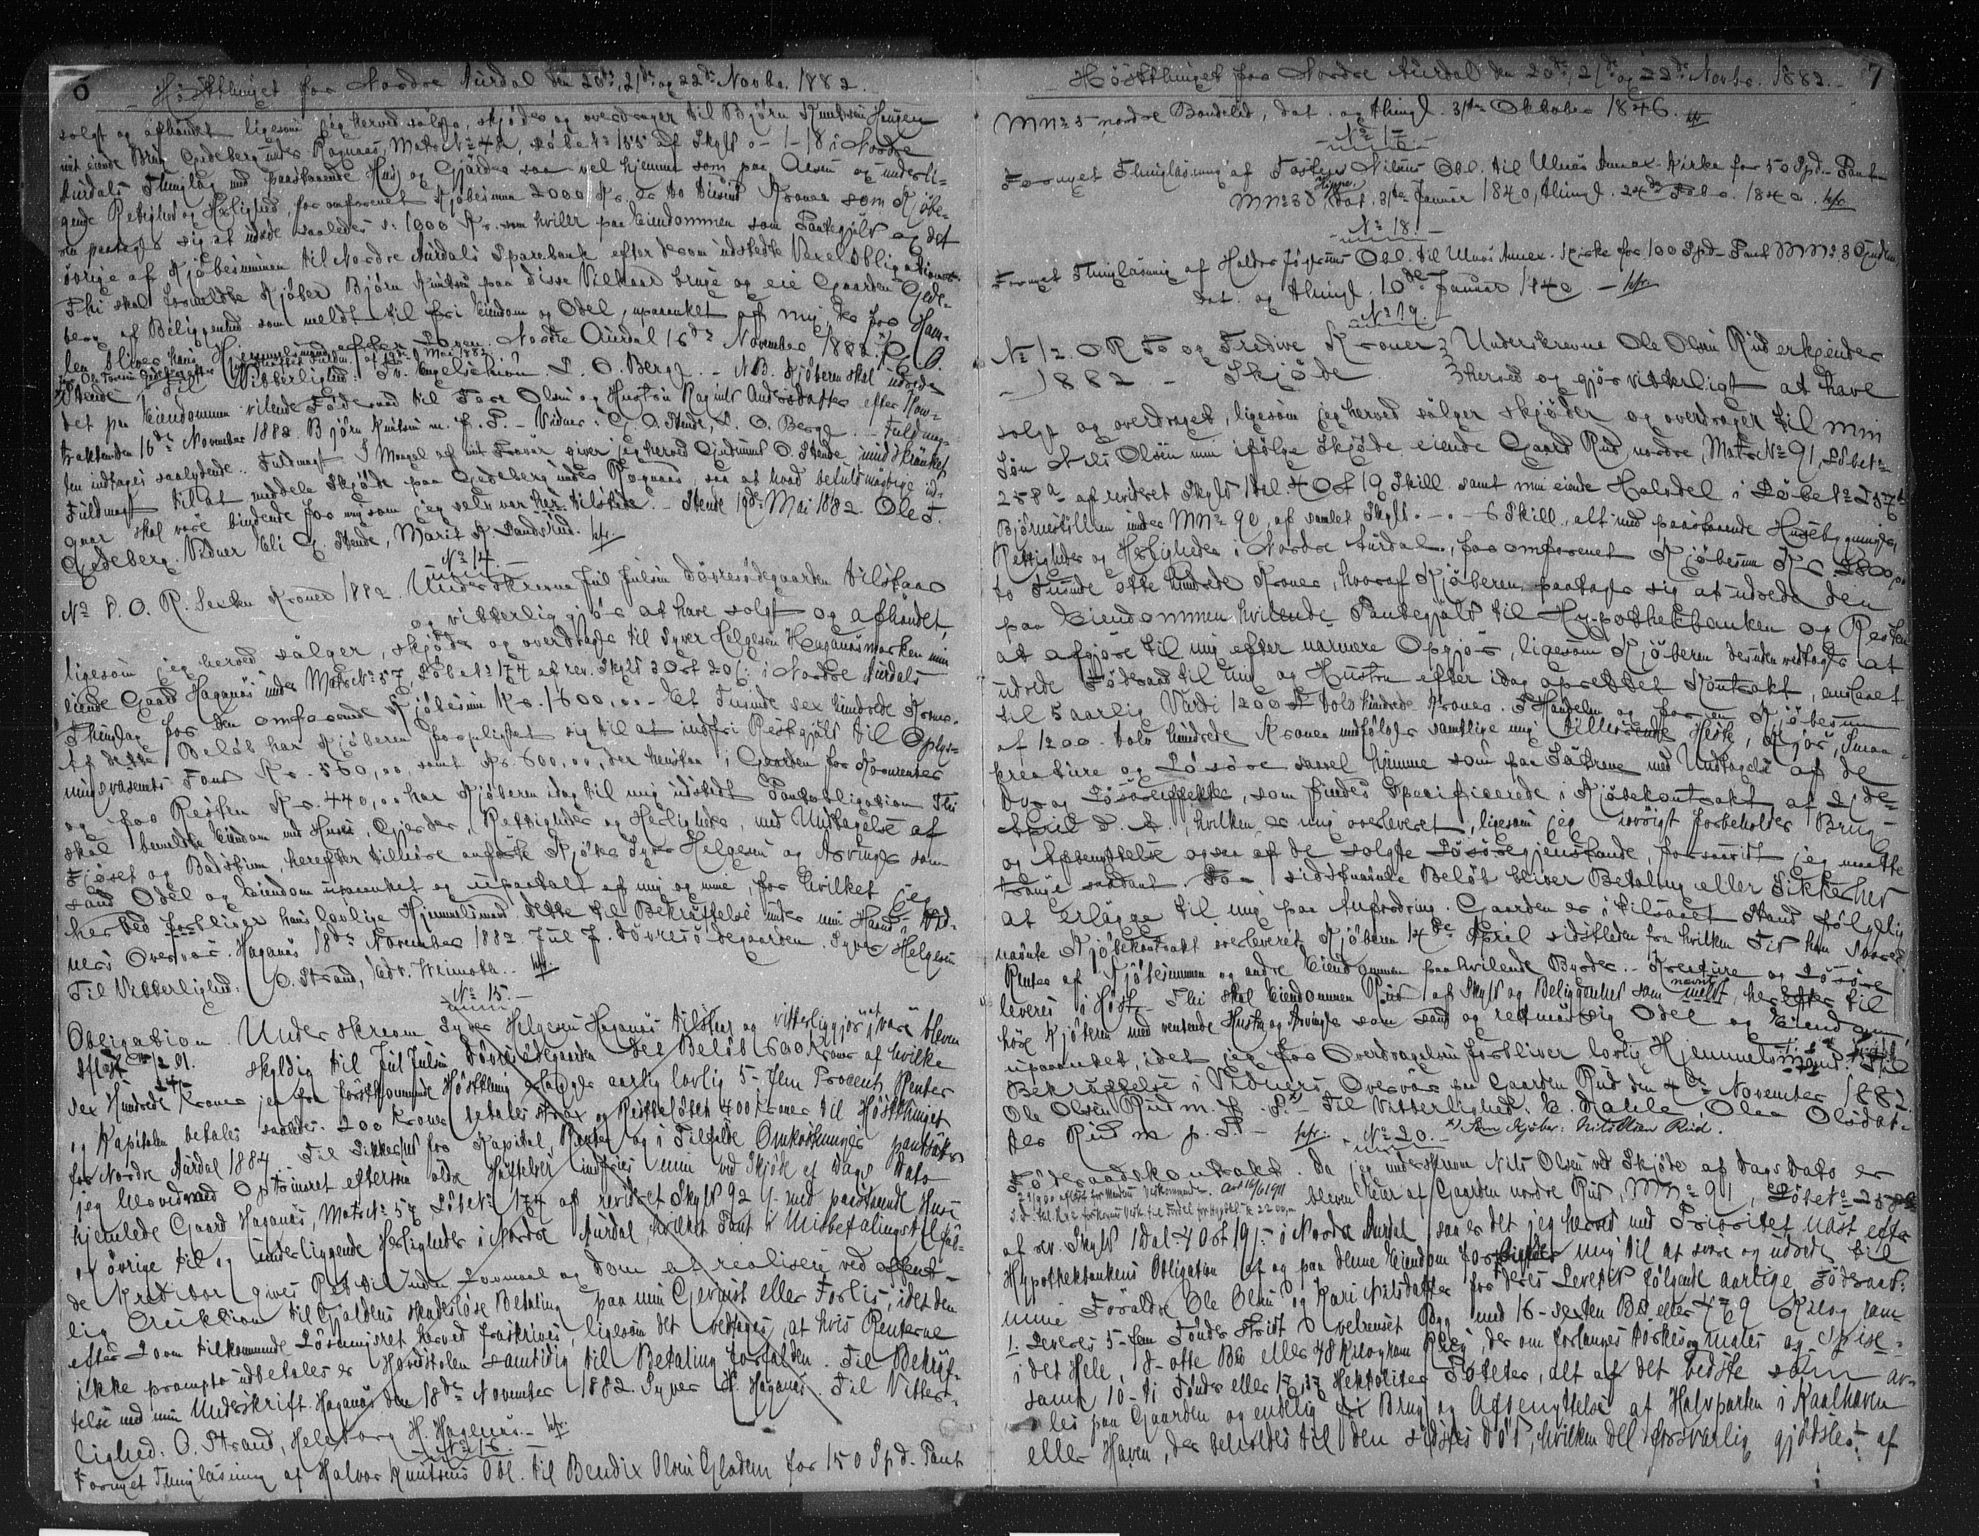 6
Høstthinget for Nordre Aurdal den 20de, 21de og 22de Novbr. 1882.
solgt og afhændet ligesom jeg herved sælger, skjøder og overdrager til Bjørn Knutsen Haugen
mit eiende Brug Gedeberg under Rognaas, Matr. No 42, Løbe No 155 af Skyld 0-1-18 i Nordre
Aurdals Thinglag med paastaaende Huse og Gjærder saa vel hjemme som paa Alsen og underli-
gende Rettighed og Herlighed, for omforenet Kjøbesum 2000 Kr. er to Tusind Kroner som Kjøbe-
ren paatager sig at udrede saaledes: 1000 Kr. som hviler paa Eiendommen som Pantegjæld og det
øvrige af Kjøbesummen til Nordre Aurdals Sparebank efter derom udstedte Vexelobligationer.
Thi skal formeldte Kjøber Bjørn Knutsen paa disse Vilkaar bruge og eie Gaarden Gede-
berg af Beliggenhed som meldt til fri Eiendom og Odel, upaaanket af mig der for Ham-
len bliver hans Hjemmelsmand efter Loven. Nordre Aurdal 16de November 1882. G. O.
for Ole Toresen Gedeberg efter Fuldm. af 19de Mai 1882
Stende, Til Vitterlighed: L. O. Berge. - NB. Kjøberen skal udrede
det paa Eiendommen hvilende Føderaad til Tore Olsen og Hustru Ragnild Andersdatter efter Kon-
trakt den 16de November 1882. Bjørn Knutsen m. f. P. - Vidner: G. O. Stende, L. O. Berge. - Fuldmag-
ten indtages saalydende: Fuldmagt. I Mangel af mit Nærvær giver jeg herved Gudmund O. Stende uindskrænket
Fuldmagt til at meddele Skjøde paa Gedeberg under Rognaas, saa at hvad befuldmægtige ud-
gjør skal være bindende for mig som jeg selv var her tilstede. - Stende 19de Mai 1882. Ole T.
Gedeberg. Vidner Eli G. Stende, Marit K. Sandsrud. hfr.
No 14.
No 8. O. R. Sexten Kroner 1882. Underskrevne Jul Julsen Døvresødegaarden tilstaar
og vitterlig gjør at have solgt og afhændet,
ligesom jeg herved sælger, skjøder og overdrager til Syver Helgesen Haganæsmarken min
eiende Gaard Haganæs under Matr. No 57, Løbe No 174 af rev. Skyld 3 Ort 20 ß i Nordre Aurdals
Thinglag for den omforenede Kjøbesum Kr. 1600,00 - Et Tusinde sex hundrede Kroner.
Af dette Beløb har Kjøberen forpligtet sig til at indfri Restgjæld til Oplys-
ningsvæsenets Fond Kr. 560,00, samt Kr. 600,00, der henstaar i Gaarden for Kreditor
og for Resten Kr. 440,00 har Kjøberen idag til mig udstedt Pantobligation. Thi
skal bemeldte Eiendom med Huse, Gjerder, Rettigheder og Herligheder, med Undtagelse af
Fjøset og Badstuen, herefter tilhøre anførte Kjøber Syver Helgesen og Arvinger som
sand Odel og Eiendom upaaanket og upaatalt af mig og mine, for hvilket jeg
herved forbliver hans lovlige Hjemmelsmand. Dette til Bekræftelse under min Haand i Vid-
ners Overvær. Haganæs 18de November 1882. Jul J. Døvresødegaarden. Syver Helgesen
Til Vitterlighed: O. Strand, hfr.
No 15.
Obligation. Underskrevne Syver Helgesen Haganæs tilstaar og vitterliggjør at være bleven
skyldig til Jul Julsen Døvresødegaarden det Beløb 600 Kroner af hvilke
sex Hundrede Kroner jeg fra førstkommende Høstthing erlægger aarlig lovlig 5 - fem Procent Renter
og Kapitalen betales saaledes: 200 Kroner betales strax og Restbeløbet 400 Kroner til Høstthinget
for Nordre Aurdal 1884. Til Sikkerhed for Kapital, Renter og i Tilfælde Omkostninger pantsætter
jeg herved med Opt. Prioritet eftersom ældre Hæftelser indfries min ved Skjøde af Dags Dato
hjemlede Gaard Haganæs, Matr. No 57, Løbe No 174 af revideret Skyld 92 ß med paastaaende Huse
og øvrige til og underliggende Herligheder i Nordre Aurdal hvilket Pant i Misbetalingstilfæl-
de Kreditor gives Ret til uden Lovmaal og Dom at realisere ved offent-
lig Auktion til Gjældens skadesløse Betaling paa min Gevinst eller Forlis, idet den
efter Loven tilkommende Løsningsret herved fraskrives, ligesom det vedtages, at hvis Renterne
ikke prompte udbetales er Hovedstolen samtidig til Betaling forfalden. Til Bekræf-
telse med min Underskrift. Haganæs den 18de November 1882. Syver H. Haganæs. Til Vitter-
lighed: O. Strand, Helsborg H. Haganæs. hfr.
No 16.
Fornyet Thinglæsning af Halvor Knutsens Obl. til Bendix Olsen Gladem for 150 Spd. Pant
Høstthinget for Nordre Aurdal den 20de, 21de og 22de Novbr. 1882. 7
MNo 5 nordre Bondelid, dat. og thingl. 31te Oktober 1846. hfr.
No 17.
Fornyet Thinglæsning af Torsten Nilsens Obl. til Ulnæs Annex-Kirke for 50 Spd. Pant
MNo 38, dat. 31te Januar 1840, thingl. 24de Febr. 1840. hfr.
No 18.
Fornyet Thinglæsning af Halvor Obl. til Ulnæs Annex-Kirke for 100 Spd. Pant MNo 3
dat. og thingl. 10de Januar 1840. - hfr.
No 19.
No 12. O R To og Tredive Kroner Underskrevne Ole Olsen Rud erkjender
1882. - Skjøde herved og gjør vitterligt at have
solgt og overdraget, ligesom jeg herved sælger skjøder og overdrager til min
Søn Nils Olsen min ifølge Skjøde eiende Gaard Rud nordre, Matr. No 91, Løbe No
258a af revideret Skyld 1 Dal. 4 Ort 19 Skill. samt min eiende Halvdel i Løbe No 257b
Bjørnestillen under MNo 90, af samlet Skyld 0-0-6 Skill., alt med paastaaende Husebygninger,
Rettigheder og Herligheder i Nordre Aurdal, for omforenet Kjøbesum Kr. 2800,00
to Tusinde otte hundrede Kroner, hvoraf Kjøberen paatager sig at udrede den
paa Eiendommen hvilende Pantegjæld til Hypothekbanken og Resten
at afgjøre til mig efter nærmere Opgjør, ligesom Kjøberen desuden vedtager at
udrede Føderaad til mig og Hustru efter idag oprettet Kontrakt, anslaaet
til 5 aarlig Værdi 1200 Kr. tolv hundrede Kroner. I Handelen og for en Kjøbesum
af 1200 - tolv hundrede Kroner medfølger samtlige mig tilhørende Heste, Kjør, Smaa-
kreature og Løsøre saavel hjemme som paa Sætrene med Undtagelse af de
Dyr og Løsøreeffekter, som findes specificerede i Kjøbekontrakt af 2/de
April d. A., hvilken er mig overleveret, ligesom jeg iøvrigt forbeholder Brug
og Afbenyttelse ogsaa af de solgte Løsøregjenstande, forsaavidt jeg maatte
trænge saadant. For sidstnævnte Beløb bliver Betaling eller Sikkerhed
at erlægge til mig paa Anfordring. Gaarden er i tilsaaet Stand følgelig
nævnte Kjøbekontrakt overleveret Kjøberen 14de April sidstleden fra hvilken Tid han svarer
Renter af Kjøbesummen og andre Eiendommen paahvilende Byrder. - Kreature og Løsøre
leveres i Høst. - Thi skal Eiendommen Rud af Skyld og Beliggenhed som nævnt herefter til
høre Kjøberen med ventende Hustru og Arvinge som sand og retmæssig Odel og Eiendom
upaaanket, idet jeg for Overdragelsen forbliver lovlig Hjemmelsmand. Til
Bekræftelse i Vidners Overvær paa Gaarden Rud den 4de November 1882.
Ole Olsen Rud m. f. P. x) - Til Vitterlighed: E. Dahle, Olea Olsdat-
ter Rud m. p. P. - hfr. x) Som Kjøber: Nils Olsen Rud.
No 20.
Føderaadskontrakt. Da jeg underskrevne Nils Olsen ved Skjøde af Dags Dato er
bleven Eier af Gaarden nordre Rud, MNo 91, Løbe No 258a
af rev. Skyld 1 Dal. 4 Ort 19 ß i Nordre Aurdal, saa er det jeg herved med Prioritet næst efter
Hypothekbankens Obligation af og paa denne Eiendom forpligter mig til at svare og udrede til
mine Forældre Ole Olsen og Kari Nilsdatter for deres Levetid følgende aarlige Føderaad:
1. Leveres 5 - fem Tønder stridt velrenset Byg med 16 - sexten Bd eller 479 Kilogram
i det Hele, 8 - otte Bd eller 48 Kilogram Rug, der om forlanges tørkes og males og spise-
samt 10 - ti Tønder eller Hektoliter Poteter, alt af det bedste som av-
les paa Gaarden og endelig fri Brug og Afbenyttelse af Halvparten i Kaalhaven
eller Haven, der beholdes til den sidstes Død, hvilken del forsvarlig gjødsles af